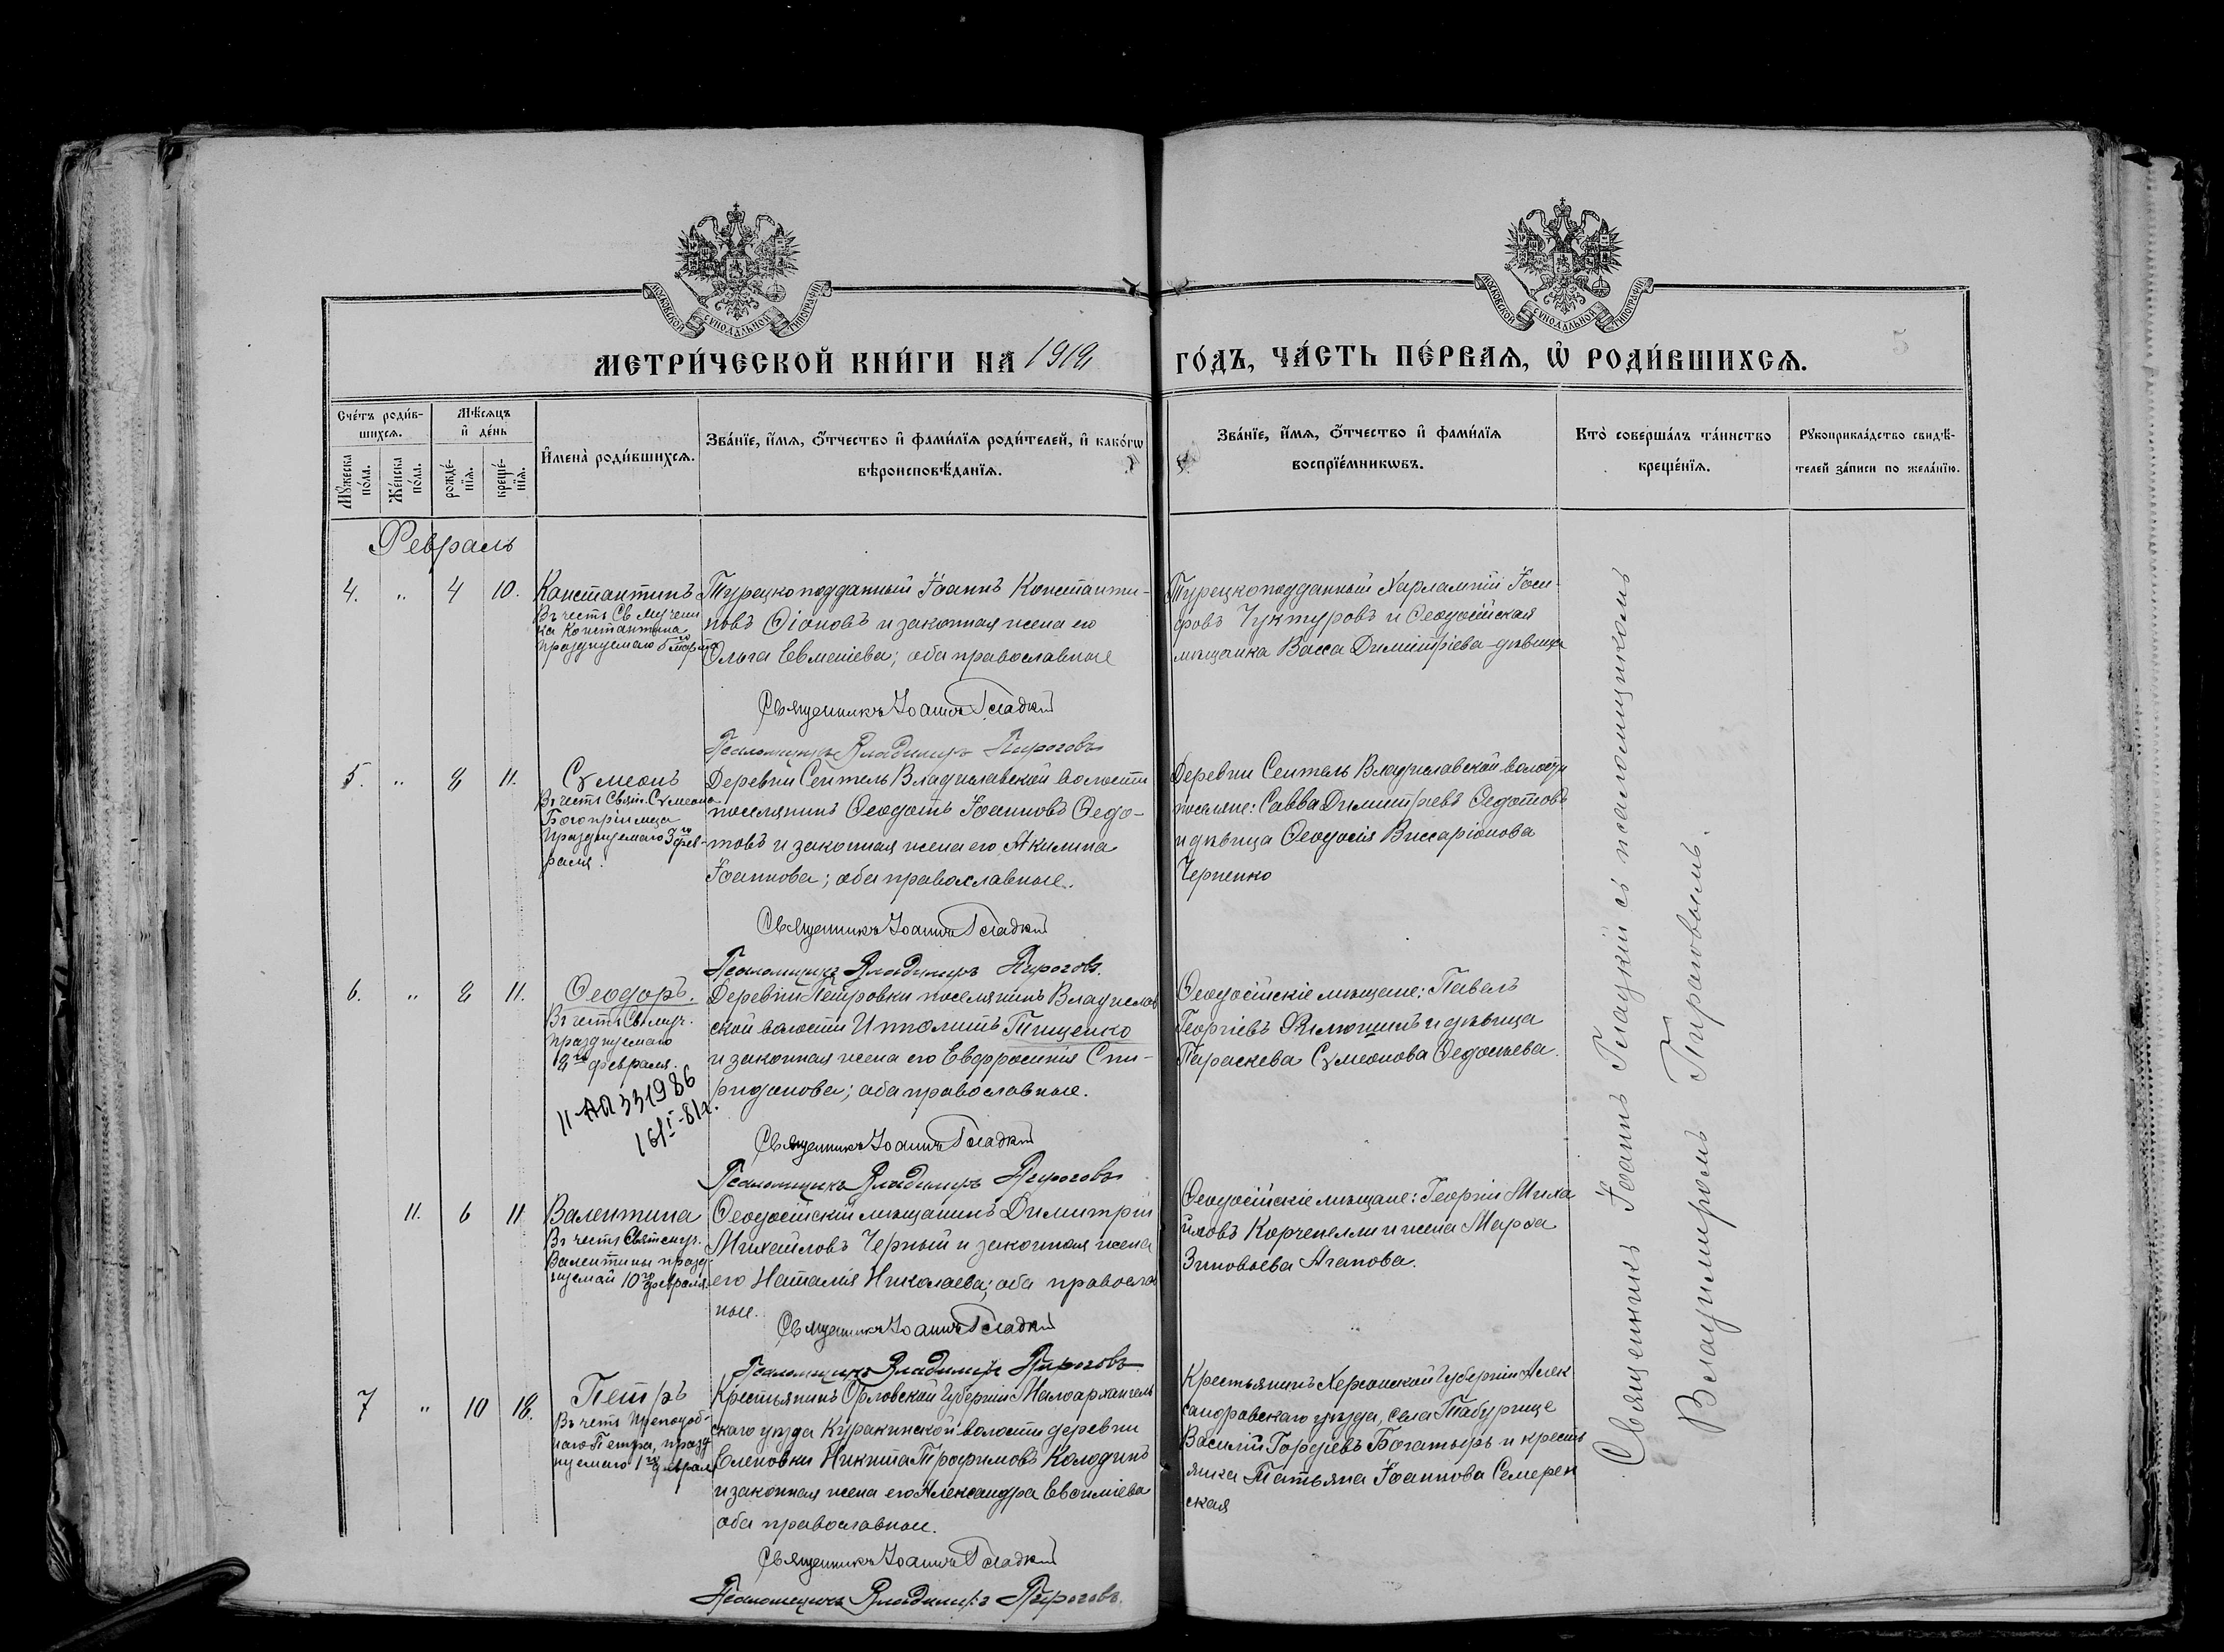 МОСКОВСКОЙ СѴНОДАЛЬНОЙ ТИПОГРАФІИ
МОСКОВСКОЙ СѴНОДАЛЬНОЙ ТИПОГРАФІИ
МЕТРИ́ЧЕСКОЙ КНИ́ГИ НА 1912
ГО́ДЪ, ЧА́СТЬ ПЕ́РВАѦ, Ѡ҆ РОДИ́ВШИХСѦ.
5
Сче́тъ роди́в-
шихсѧ.
Мѣ́сѧцъ
и҆ де́нь
И҆мена̀ роди́вшихсѧ.
Зва́нїе, и҆́мѧ, ѻ҆́тчество и҆ фами́лїѧ роди́телей, и҆ како́гѡ
вѣроисповѣ́данїѧ.
Зва́нїе, и҆́мѧ, ѻ҆́тчество и҆ фами́лїѧ
воспрїе́мникѡвъ.
Кто̀ соверша́лъ та́инство
креще́нїѧ.
Рꙋкоприкла́дство свидѣ́-
телей за́писи по жела́нїю.
Мꙋ́жеска
по́ла.
Же́нска
по́ла.
рожде́-
нїѧ.
креще́-
нїѧ.
Февраль
4. " 4 10.
Константинъ
Въ честь Св. мучени
ка Константина
празднуемаго 6го марта
Турецкоподданный Іоаннъ Константи-
новъ Ѳіоновъ и законная жена его
Ольга Евменіева; оба православные
Священникъ Іоаннъ Гладкій
Псаломщикъ Владимиръ Пироговъ
Турецкоподданный Харлампій Іоси-
фовъ Чуктуровъ и Ѳеодосійская
мѣщанка Васса Димитріева дѣвица
5. " 8 11.
Сѵмеонъ
Въ честь Свят. Сѵмеона
Богопріимца
празднуемаго 3го фев-
раля.
Деревни Сеитель Владиславской волости
поселянинъ Ѳеодотъ Іоанновъ Ѳедо-
товъ и законная жена его Акилина
Іоаннова; оба православные.
Священникъ Іоаннъ Гладкій
Псаломщикъ Владимиръ Пироговъ.
Деревни Сеитель Владиславской волости
поселяне: Савва Димитріевъ Ѳедотовъ
и дѣвица Ѳеодосія Виссаріонова
Черненко
6. " 8 11.
Ѳеодоръ.
Въ честь Св. муч.
празднуемаго
8го февраля.
II-АП 331986
16/I-81г.
Деревни Петровки поселянинъ Владислав
ской волости Ипполитъ Тищенко
и законная жена его Евфросинія Спи-
ридонова; оба православные.
Священникъ Іоаннъ Гладкій
Псаломщикъ Владимиръ Пироговъ
Ѳеодосійскіе мѣщане: Павелъ
Георгіевъ и дѣвица
Параскева Сѵмеонова Ѳедосьева.
11. 6 11
Валентина
Въ честь Свят. муч.
Валентины празд-
нуемой 10го февраля.
Ѳеодосійскій мѣщанинъ Димитрій
Михайловъ Черный и законная жена
его Наталія Николаева; оба православ
ные.
Священникъ Іоаннъ Гладкій
Псаломщикъ Владимиръ Пироговъ
Ѳеодосійскіе мѣщане: Георгій Миха
иловъ Корченелли и жена Марѳа
Зиновьева Агапова.
7 " 10 18.
Петръ
Въ честь Преподоб-
наго Петра, празд
нуемаго 1го февраля
Крестьянинъ Орловской губерніи Малоархангель
скаго уѣзда Куракинской волости деревни
Еленовки Никита Трофимовъ Колодинъ
и законная жена его Александра Евѳиміева
оба православные.
Священникъ Іоаннъ Гладкій
Псаломщикъ Владимиръ Пироговъ.
Крестьянинъ Херсонской губерніи Алек
сандровскаго уѣзда, села Табурище
Василій Гордіевъ Богатырь и кресть
янка Татьяна Іоаннова Семерен
ская
Священникъ Іоаннъ Гладкій съ псаломщикомъ
Владимиромъ Пироговымъ.